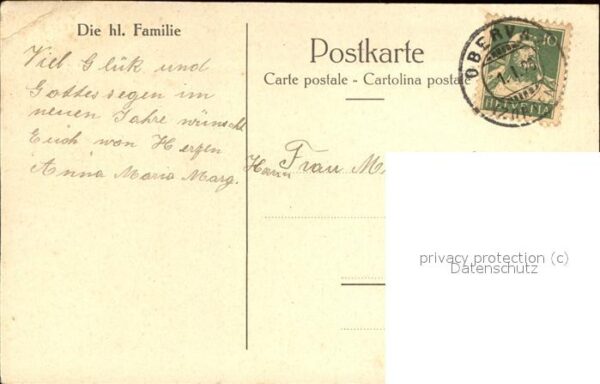 Die hl. Familie
Viel Glük und
Gottes segen im
neuen Jahre wünscht
Euch von Herfen
Anna Maria Marg.
Postkarte
Carte postale - Cartolina postale
10
HELVETIA
OBERV
1.I.25
Herrn Frau M.
privacy protection (c)
Datenschutz